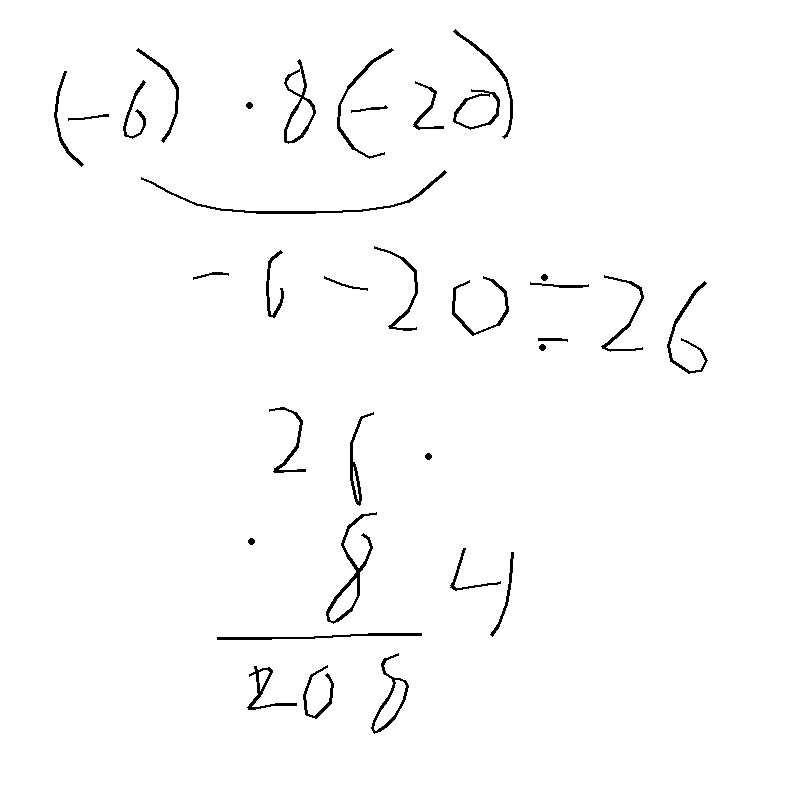 (-6) · 8(-20)
-6-20=26
26 ·
· 8 4
208